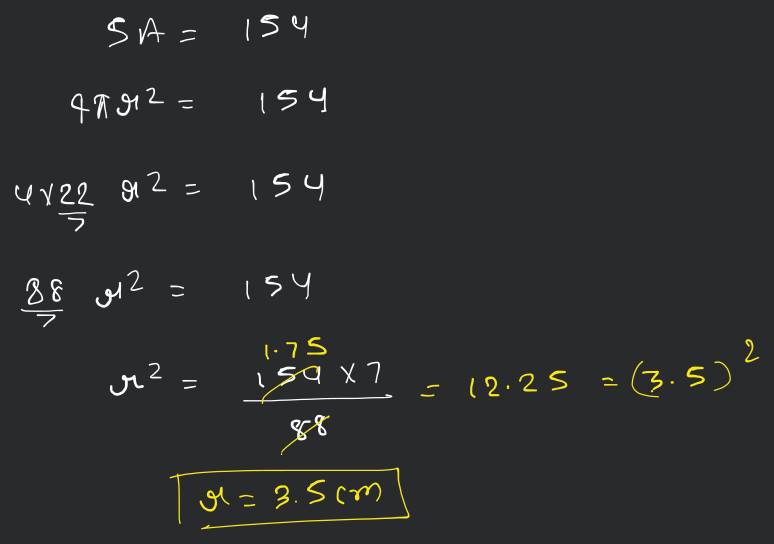 SA = 154
4πr² = 154
4×22/7 r² = 154
88/7 r² = 154
1.75
r² = 154 × 7 / 88 = 12.25 = (3.5)²
r = 3.5 cm